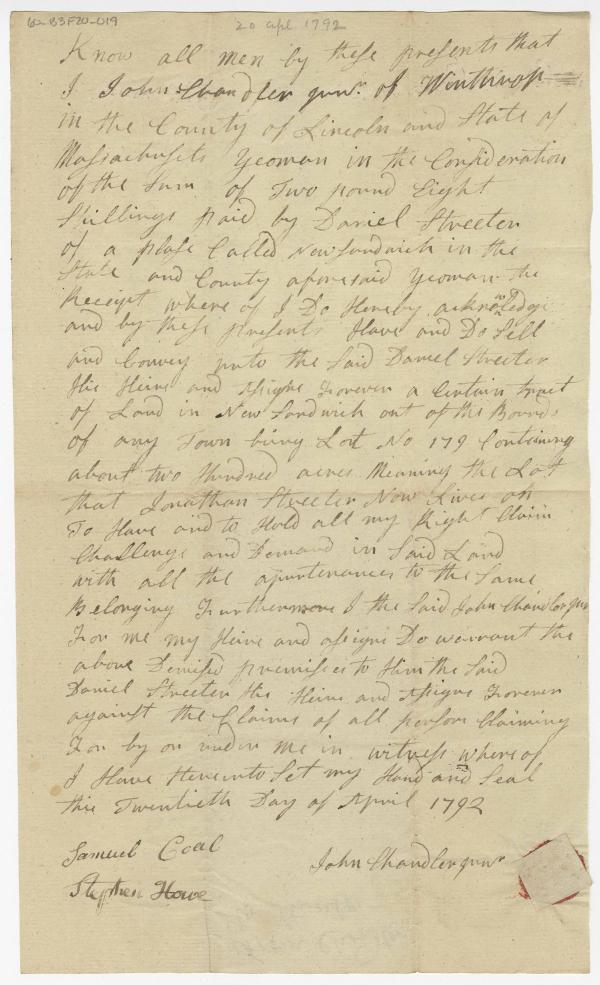 62-B3F20-019
20 apl 1792
Know all men by these presents that
I John Chandler junr. of Winthrop
in the County of Lincoln and State of
Massachusets Yeoman in the Consideration
of the Sum of Two pound Eight
Shillings paid by Daniel Streeter
of a plase Called New Sandwich in the
State and County aforesaid Yeoman the
Receipt where of I Do Hereby acknowledge
and by these presents Have and Do Sell
and Convey unto the Said Daniel Streeter
His Heirs and Asigns Forever a Certain tract
of Land in New Sandwich out of the Bounds
of any Town being Lot No 179 Containing
about two Hundred acres Meaning the Lot
that Jonathan Streeter Now Lives on
To Have and to Hold all my Right Claim
Challenge and Demand in Said Land
with all the apurtenances to the Same
Belonging Furthermore I the Said John Chandler jun
For me my Heirs and asigns Do warrant the
above Demised premises to Him the Said
Daniel Streeter His Heirs and Asigns Forever
against the Claims of all persons Claiming
For by or under me in witness whereof
I Have Hereunto Set my Hand and Seal
this Twentieth Day of April 1792
Samuel Coal
John Chandler junr
Stephen Howe